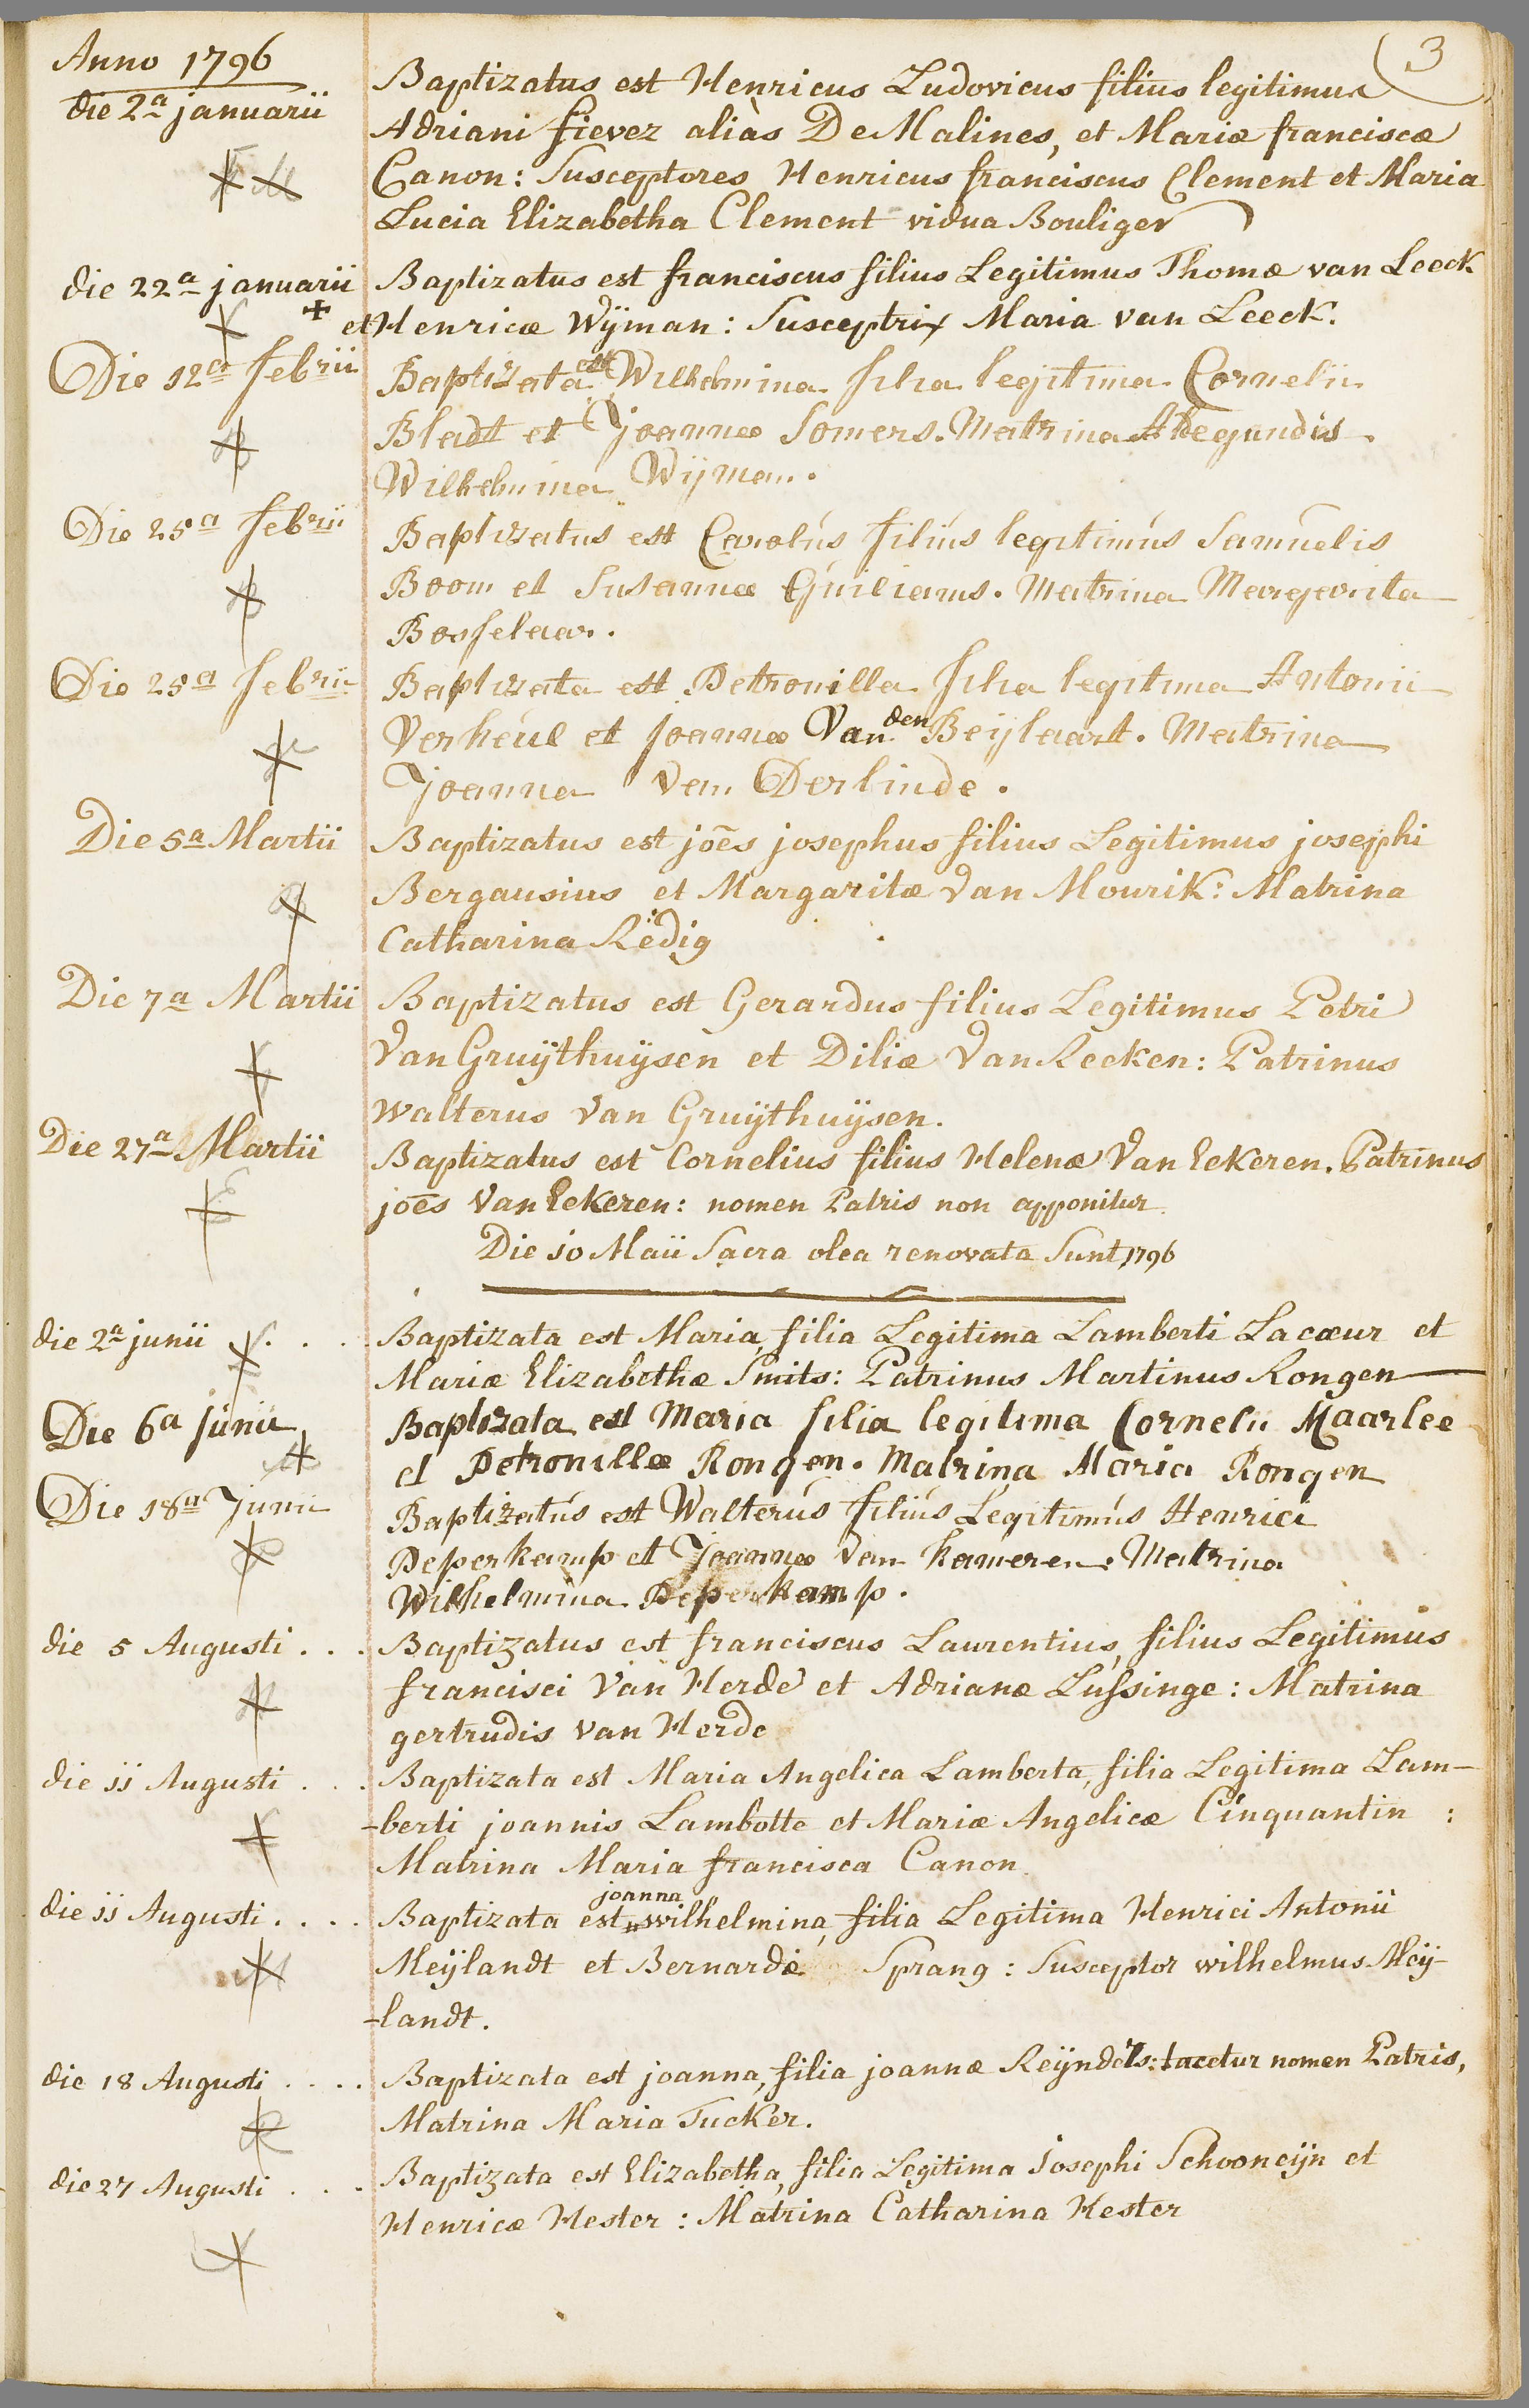 3
Anno 1796
die 2a januarii
Baptizatus est Henricus Ludovicus filius legitimus
Adriani fievez aliàs De Malines, et Mariæ franciscæ
Canon: Susceptores Henricus franciscus Clement et Maria
Lucia Elizabetha Clement vidua Bouliger
die 22a januarii
Baptizatus est franciscus filius Legitimus Thomæ van Leeck
et Henricæ Wÿman: Susceptrix Maria van Leeck.
Die 12a febrii
Baptizata est Wilhelmina filia legitima Cornelii
Bladt et Joannæ Somers. Matrina Aldegundis
Wilhelmina Wijman.
Die 25a febrii
Baptizatus est Carolús filiús legitimús Samúelis
Boom et Susannæ Guiliams. Matrina Margarita
Bosselaar.
Die 25a febrii
Baptizata est Petronilla filia legitima Antonii
Verheúl et Joannæ Van den Beijlaart. Matrina
Joanna Van Derlinde.
Die 5a Martii
Baptizatus est joēs josephus filius Legitimus josephi
Bergausius et Margaritæ Van Mourik: Matrina
Catharina Redig
Die 7a Martii
Baptizatus est Gerardus filius Legitimus Petri
Van Gruÿthuÿsen et Diliæ Van Reeken: Patrinus
walterus Van Gruÿthuÿsen.
Die 27a Martii
Baptizatus est Cornelius filius Helenæ Van Eekeren. Patrinus
joēs Van Eekeren: nomen Patris non apponitur.
Die 10 Maii Sacra olea renovata Sunt 1796
die 2a junii . . .
Baptizata est Maria, filia Legitima Lamberti Lacœur et
Mariæ Elizabethæ Smits: Patrinus Martinus Rongen
Die 6a Junii
Baptizata est Maria filia legitima Cornelii Maarlee
et Petronillæ Rongen. Matrina Maria Rongen
Die 18a Junii
Baptizatús est Walterús filiús Legitimús Henrici
Peperkamp et Joannæ Van Kameren. Matrina
Wilhelmina Peperkamp.
die 5 Augusti . . .
Baptizatus est franciscus Laurentius, filius Legitimus
francisci Van Herde et Adrianæ Lussinge: Matrina
gertrudis van Herde
die 11 Augusti . . .
Baptizata est Maria Angelica Lamberta, filia Legitima Lam-
-berti joannis Lambotte et Mariæ Angelicæ Cinquantin :
Matrina Maria francisca Canon.
die 11 Augusti . . . .
Baptizata est joanna wilhelmina, filia Legitima Henrici Antonii
Meÿlandt et Bernardæ Sprang : Susceptor wilhelmus Meÿ-
-landt.
die 18 Augusti . . . .
Baptizata est joanna, filia joannæ Reÿndels: tacetur nomen Patris,
Matrina Maria Tucker.
die 27 Augusti . . .
Baptizata est Elizabetha, filia Legitima Josephi Schooneijn et
Henricæ Hester : Matrina Catharina Hester